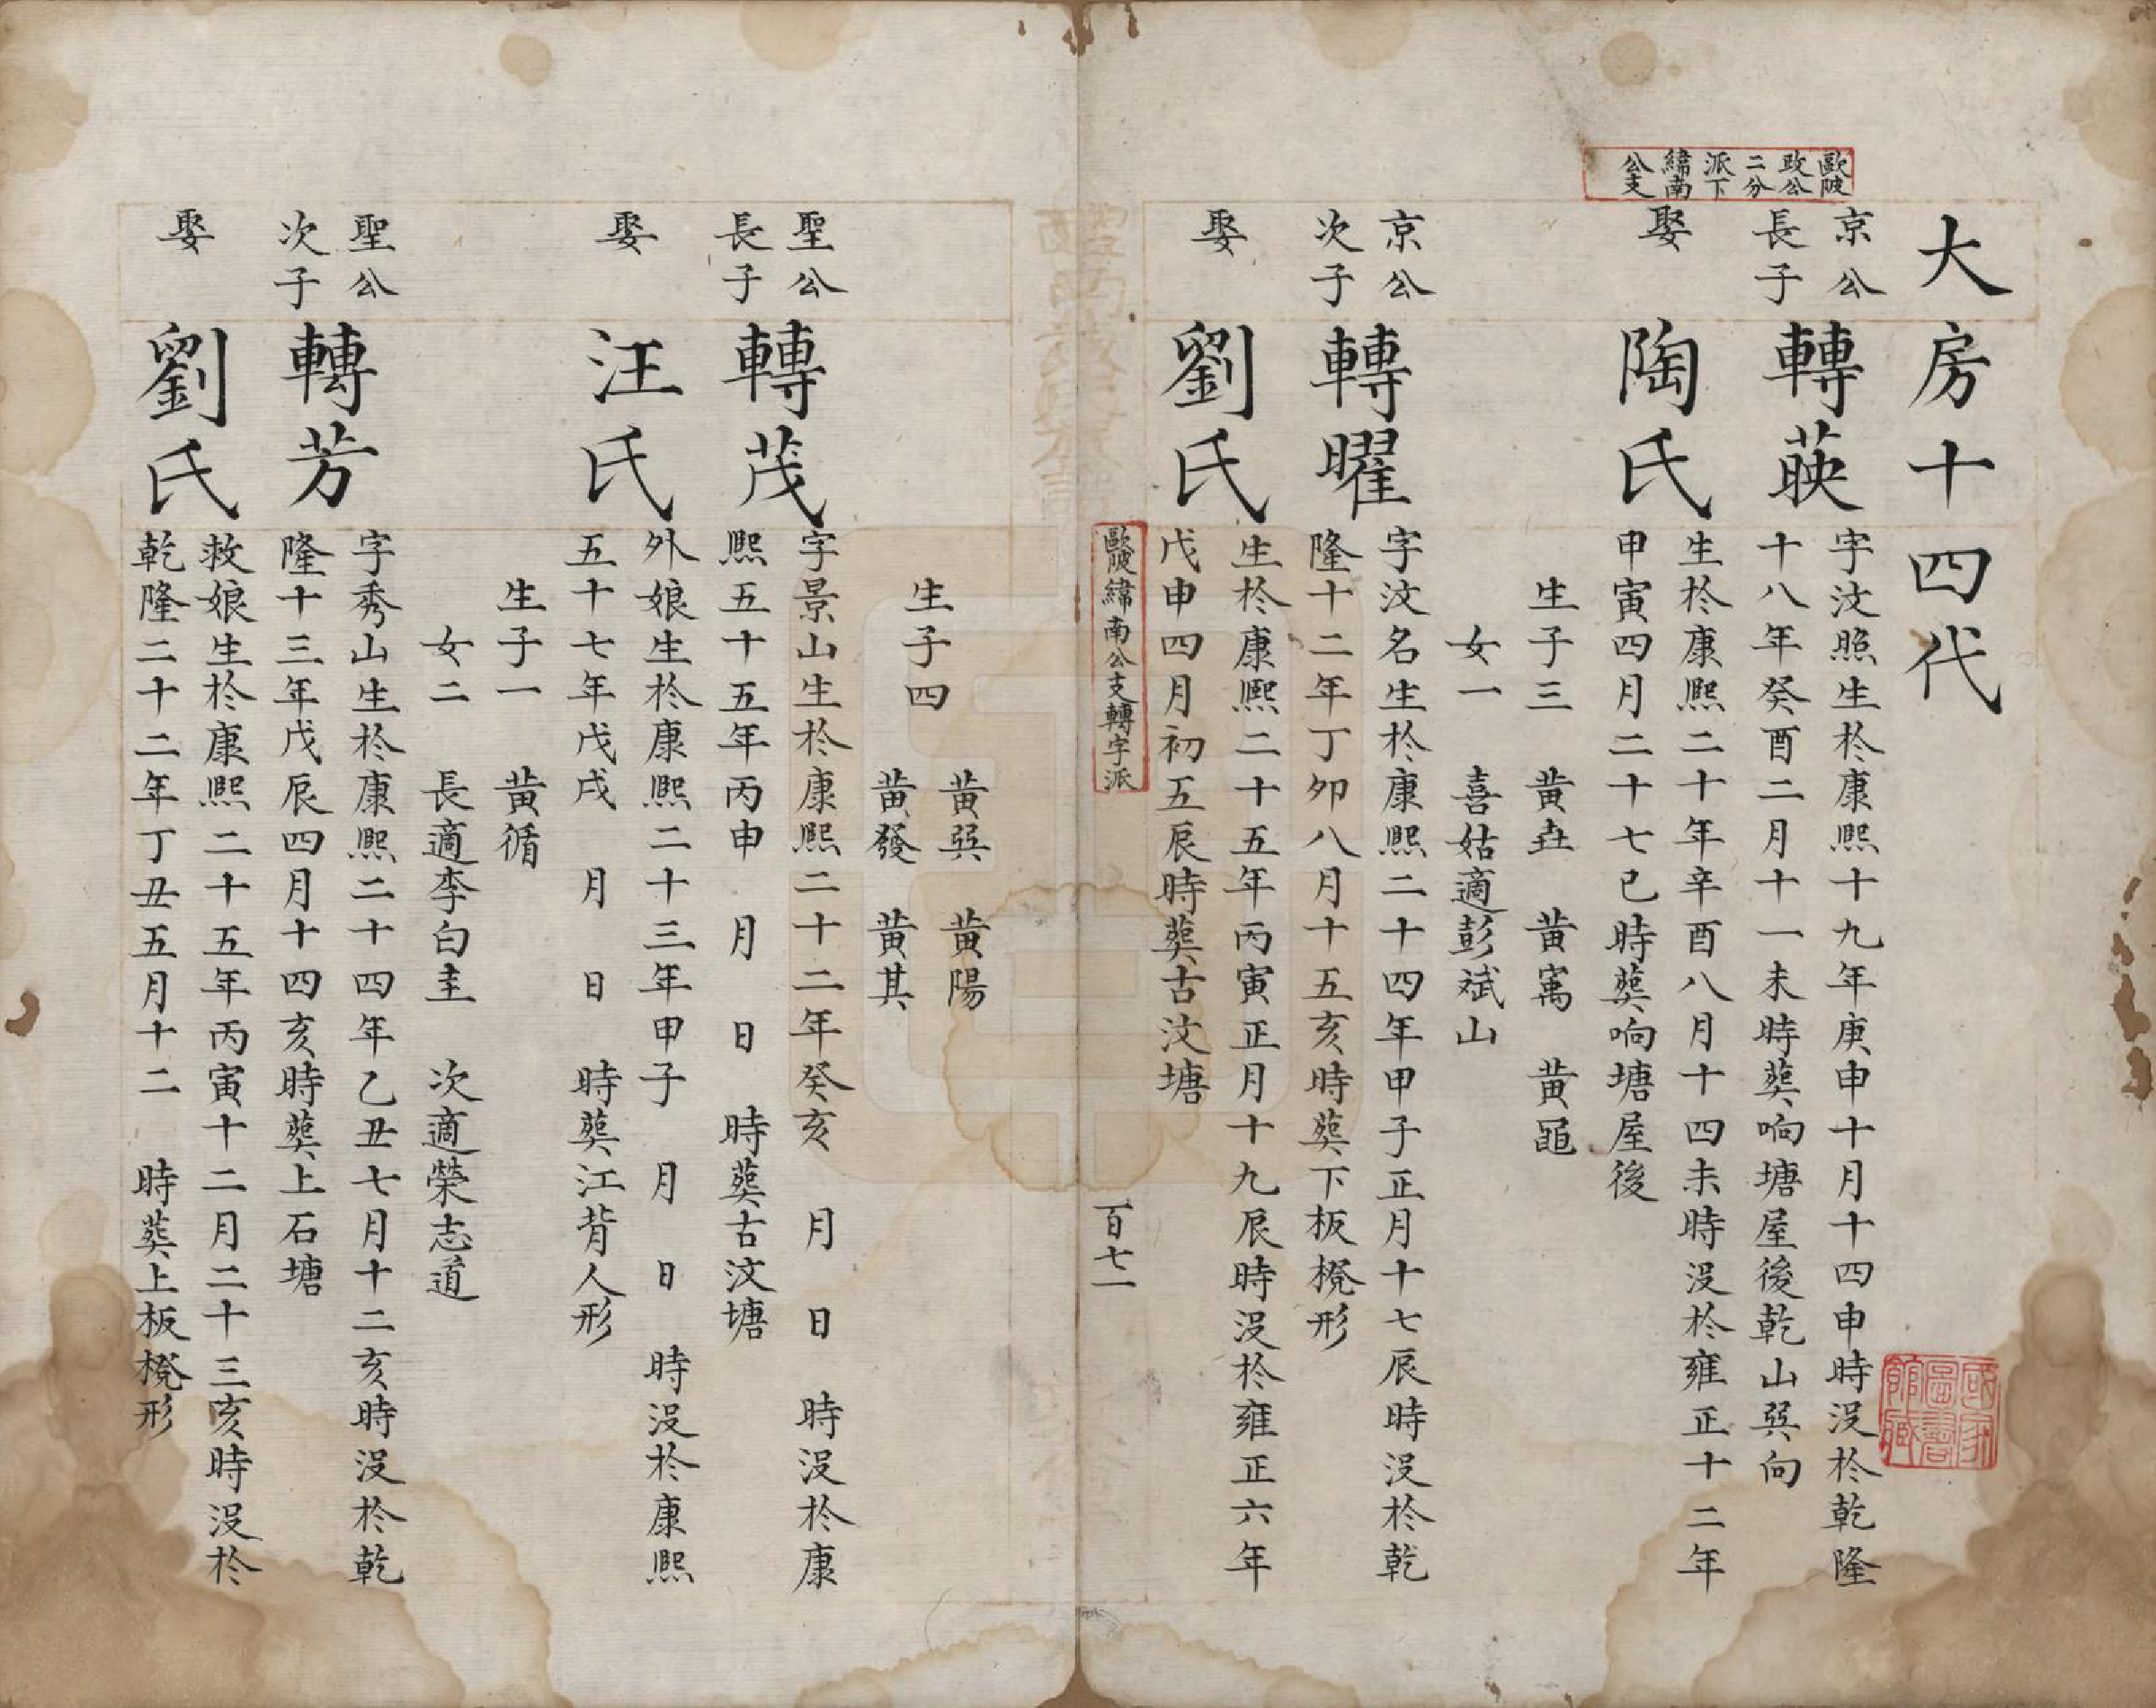 歐陂
政公
二分
派下
緯南
公支
大房十四代
京公
長子
轉䕋
字汶照生於康熙十九年庚申十月十四申時没於乾隆
十八年癸酉二月十一未時葬响塘屋後乾山巽向
娶
陶氏
生於康熙二十年辛酉八月十四未時没於雍正十二年
甲寅四月二十七巳時葬响塘屋後
生子三 黄壵 黄寓 黄黽
女一 喜姑適彭斌山
京公
次子
轉曜
字汶名生於康熙二十四年甲子正月十七辰時没於乾
隆十二年丁卯八月十五亥時葬下板櫈形
娶
劉氏
生於康熙二十五年丙寅正月十九辰時没於雍正六年
戊申四月初五辰時葬古汶塘
歐陂緯南公支轉字派
百七一
生子四
黄巽 黄陽
黄發 黄其
聖公
長子
轉茂
字景山生於康熙二十二年癸亥 月 日 時没於康
熙五十五年丙申 月 日 時葬古汶塘
娶
汪氏
外娘生於康熙二十三年甲子 月 日 時没於康熙
五十七年戊戌 月 日 時葬江背人形
生子一 黄循
女二 長適李白圭 次適榮志道
聖公
次子
轉芳
字秀山生於康熙二十四年乙丑七月十二亥時没於乾
隆十三年戊辰四月十四亥時葬上石塘
娶
劉氏
救娘生於康熙二十五年丙寅十二月二十三亥時没於
乾隆二十二年丁丑五月十二 時葬上板櫈形
國家
圖書
館藏